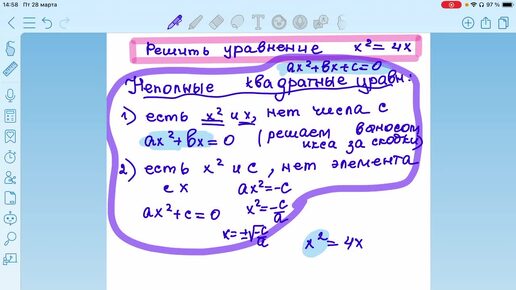 14:58 Пт 28 марта
97 %
Решить уравнение x² = 4x
ax²+bx+c=0
Неполные квадратные уравн:
1) есть x² и x, нет числа c
ax²+bx=0 (решаем выносом
икса за скобки)
2) есть x² и c, нет элемента
с x ax²=-c
ax²+c=0 x²=-c/a
x=±√-c/a
x²=4x